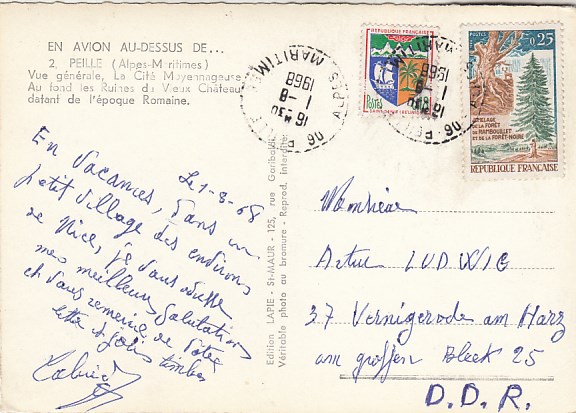 EN AVION AU-DESSUS DE...
2. PEILLE (Alpes-Maritimes)
Vue générale, La Cité Moyennageuse
Au fond les Ruines du Vieux Château
datant de l'époque Romaine.
RÉPUBLIQUE FRANÇAISE
Postes
SAINT-DENIS (RÉUNION)
POSTES 0,25
JUMELAGE
DE LA FORÊT
DE RAMBOUILLET
ET DE LA FORÊT-NOIRE
RÉPUBLIQUE FRANÇAISE
06 PEILLE ALPES MARITIMES
16 H 30
1-8
1968
06 PEILLE
16 H 30
1-8
1968
Le 1-8-68
En vacances, dans un
petit village des environs
de Nice, je vous adresse
mes meilleures salutations
et vous remercie de votre
lettre et jolis timbres
Edition LAPIE - St-MAUR - 125, rue Garibaldi
Véritable photo au bromure - Reprod. interdite
Monsieur
Artur LUDWIG
37 Vernigerode am Harz
am großen Bleek 25
D.D.R.